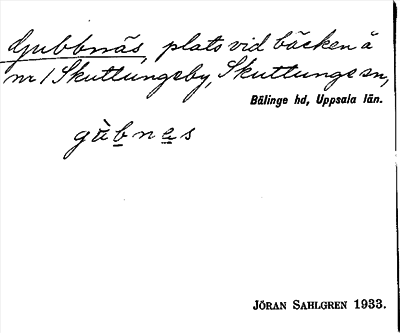 Djubbnäs, plats vid bäcken å
nr 1 Skuttungeby, Skuttunge sn,
Bälinge hd, Uppsala län.
gùb̲ne̲s
JÖRAN SAHLGREN 1933.